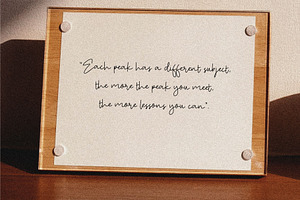 "Each peak has a different subject,
the more the peak you meet,
the more lessons you can".